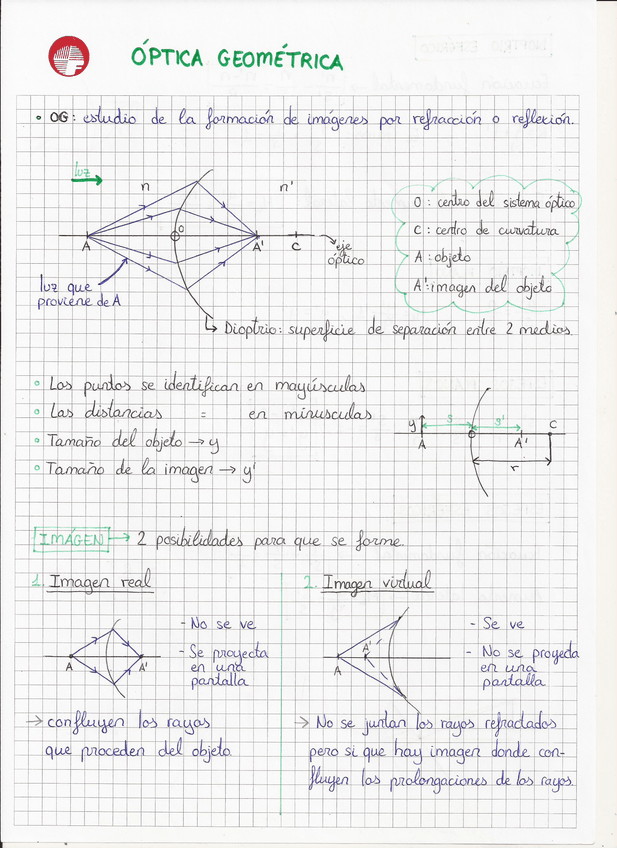 ÓPTICA GEOMÉTRICA
• OG: estudio de la formación de imágenes por refracción o reflexión.
luz
n
n'
O
A
A'
C
eje
óptico
luz que
proviene de A
O: centro del sistema óptico
C: centro de curvatura
A: objeto
A': imagen del objeto
Dioptrio: superficie de separación entre 2 medios
Los puntos se identifican en mayúsculas
Las distancias = en minusculas
Tamaño del objeto → y
Tamaño de la imagen → y'
y
s
s'
A
A'
C
r
IMÁGEN → 2 posibilidades para que se forme.
1. Imagen real
A
A'
- No se ve
- Se proyecta
en una
pantalla
→ confluyen los rayos
que proceden del objeto
2. Imagen virtual
A
A'
- Se ve
- No se proyecta
en una
pantalla
→ No se juntan los rayos refractados
pero si que hay imagen donde con-
fluyen las prolongaciones de los rayos.